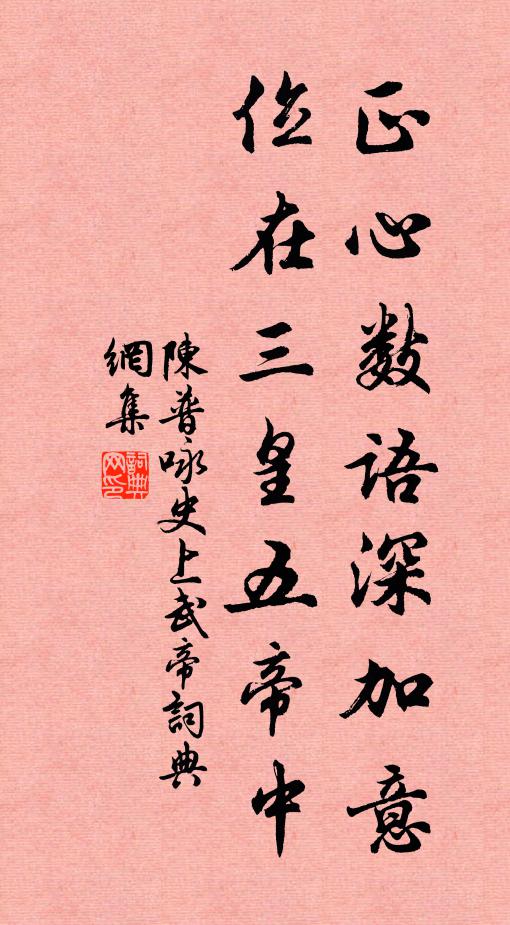 正心数語深加意
位在三皇五帝中
陳普咏史上武帝詞典
網集
詞典網印